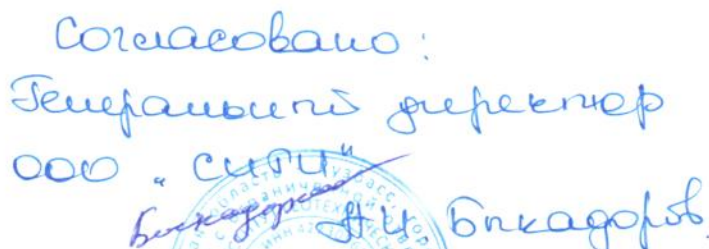 Согласовано:
Генеральный директор
ООО "СИГИ"
А.И. Бикадоров